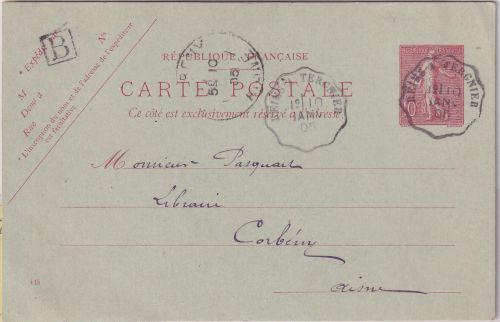 B
N°
* Expédit
M
Demt à
Rue
* L'inscription du nom et de l'adresse de l'expéditeur
est facultative.
RÉPUBLIQUE FRANÇAISE
CARTE POSTALE
Ce côté est exclusivement réservé à l'adresse.
10
05
TERGNIER
1° 10
JANV
05
TERGNIER
10
JANV
05
10
Monsieur Pasquart
Libraire
Corbény
Aisne
418